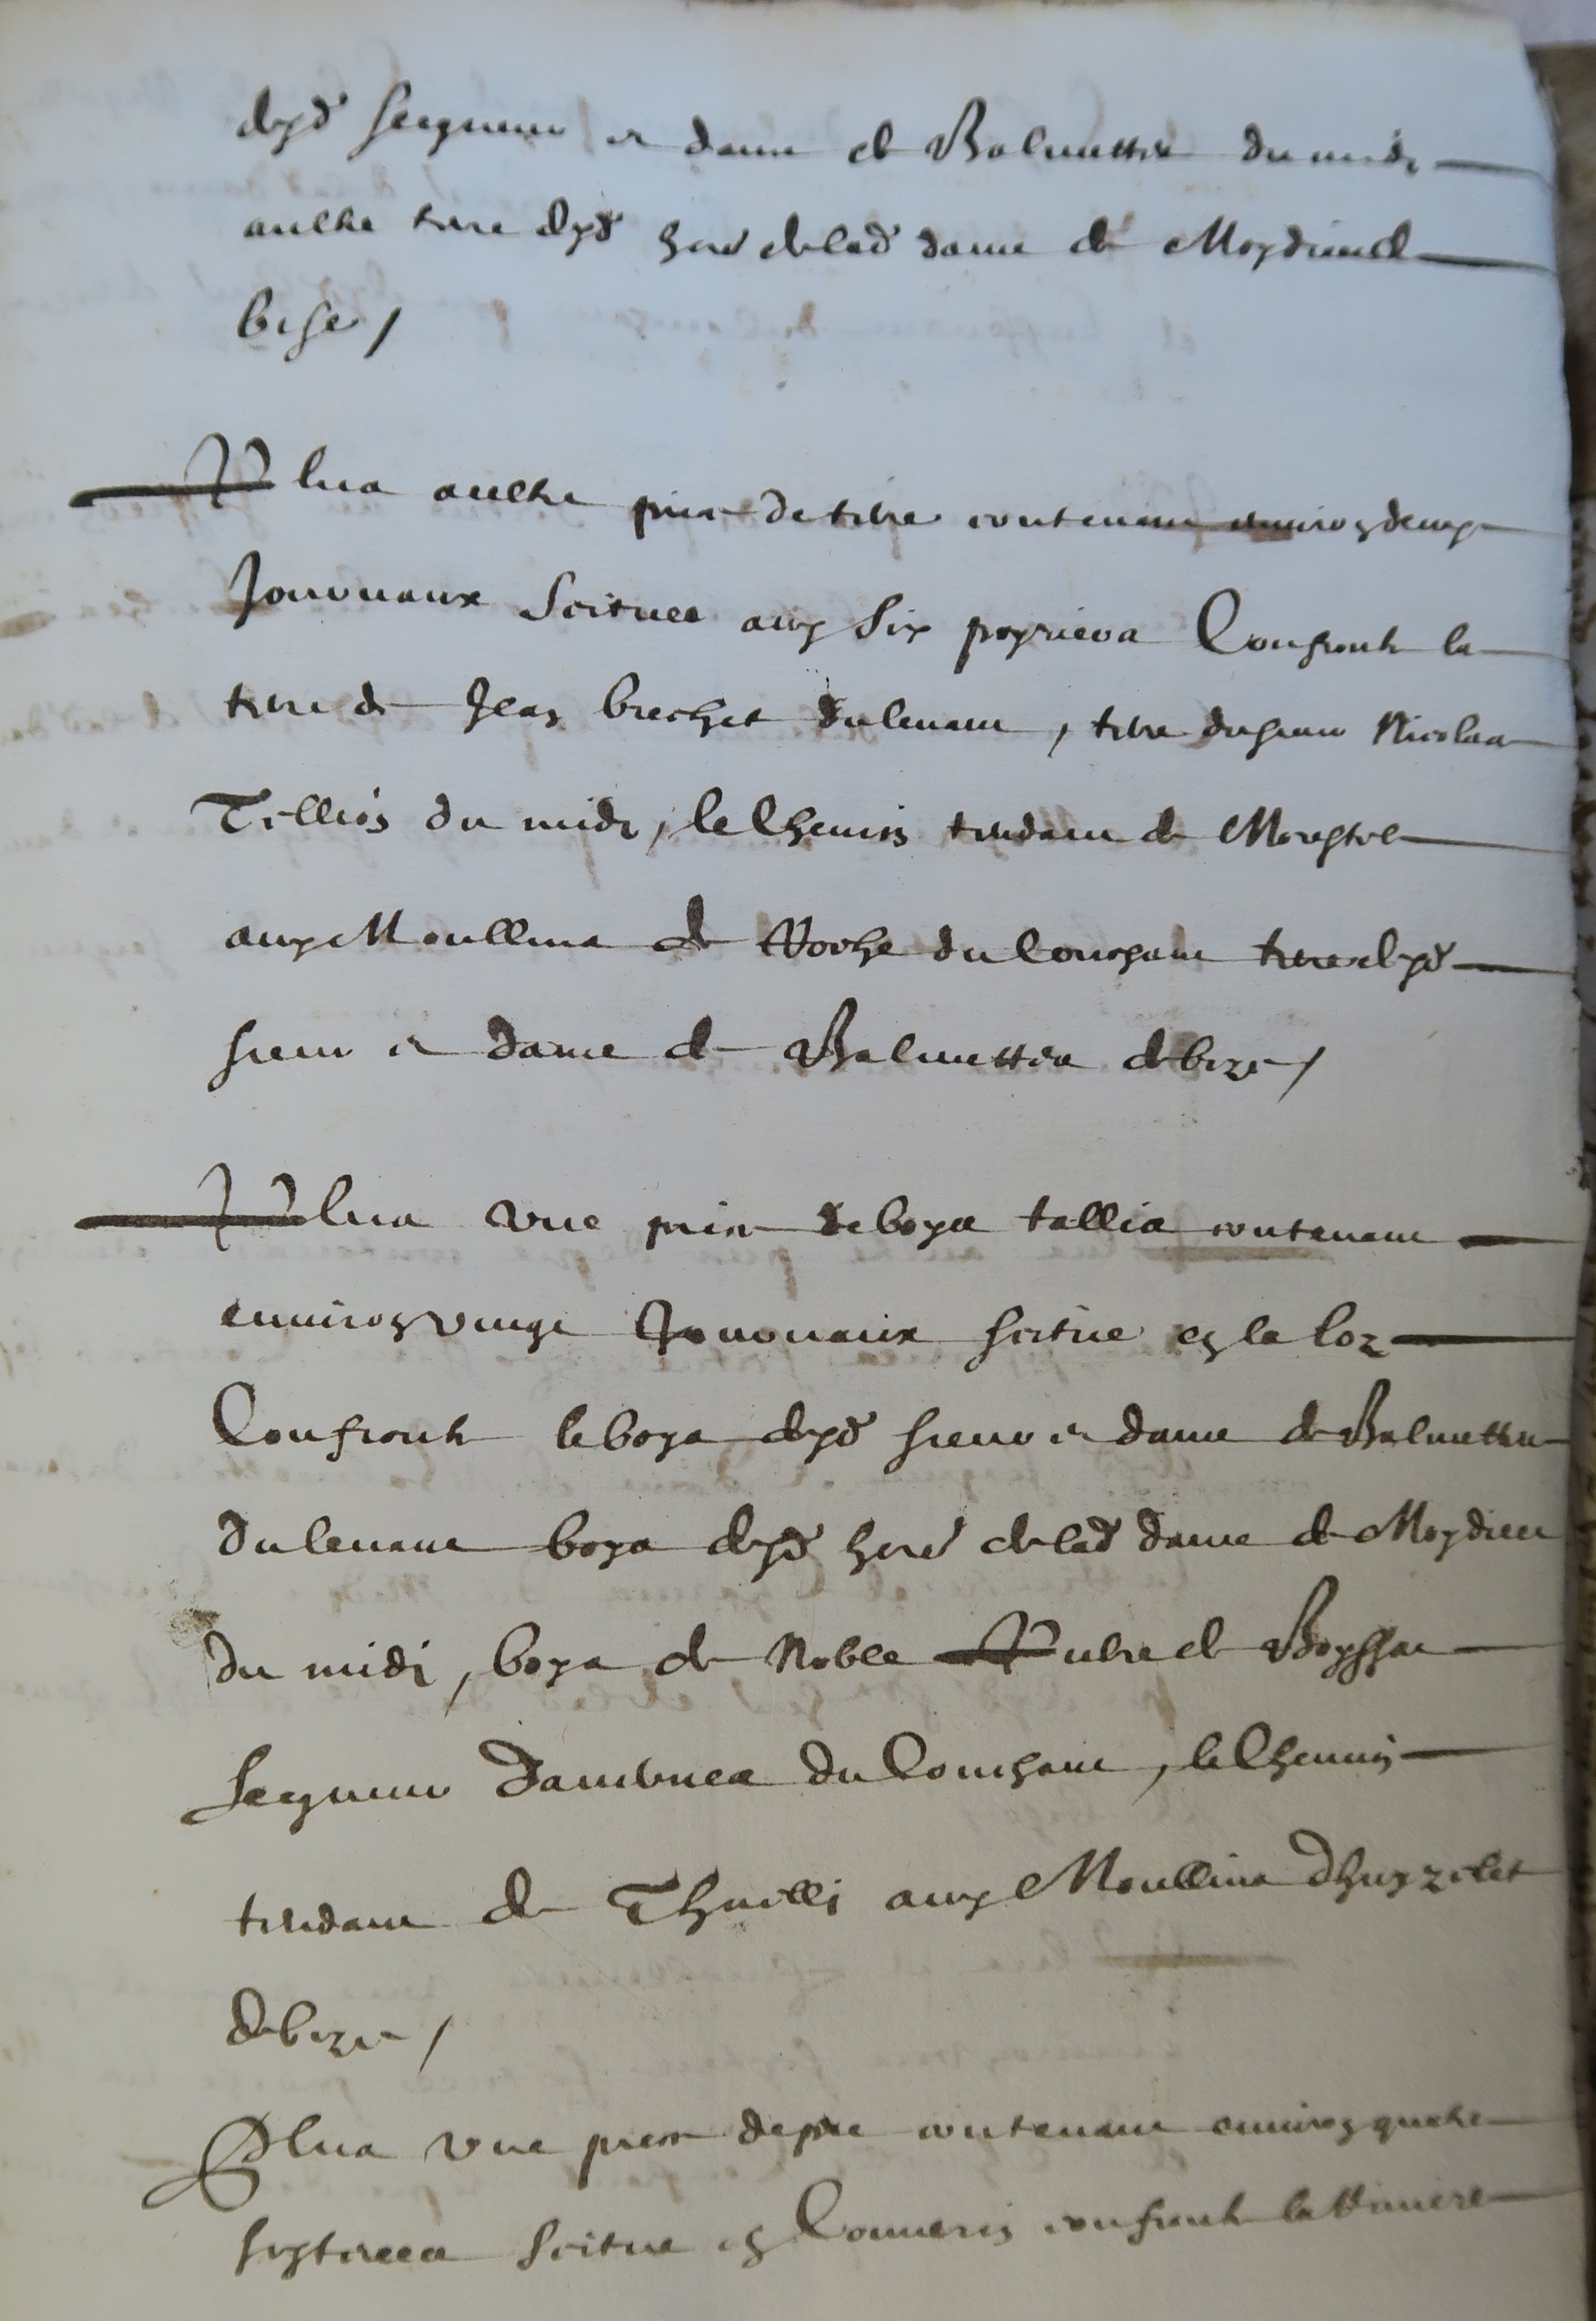 desd seigneur et dame de Balmettes du midi
aultre terre desd hers de lad dame de Moydieu de
bise /
Plus aultre piece de terre contenant environ deux
Journaux scituee aux six poyrieos Confronte la
terre de Jean brechet du levant, terre du sieur Nicolas
Tellios du midi, le Chemin tendant de Morestel
aux Moullins de Roche du Couchant terre desd
sieur et dame de Balmettes de bize /
Plus une piece de boys tallis contenant
environ vingt Journaux scitue en la loz
Confronte le boys desd sieur et dame de Balmettes
du levant boys desd hers de lad dame de Moydieu
du midi, boys de Noble Pierre de Boyssac
seigneur Dambues du Couchant, le Chemin
tendant de Thuilli aux Moullins dhuyzelet
de bize /
Plus une piece de pre contenant environ quatre
seyterees scitue en Couverin confronte la Riviere